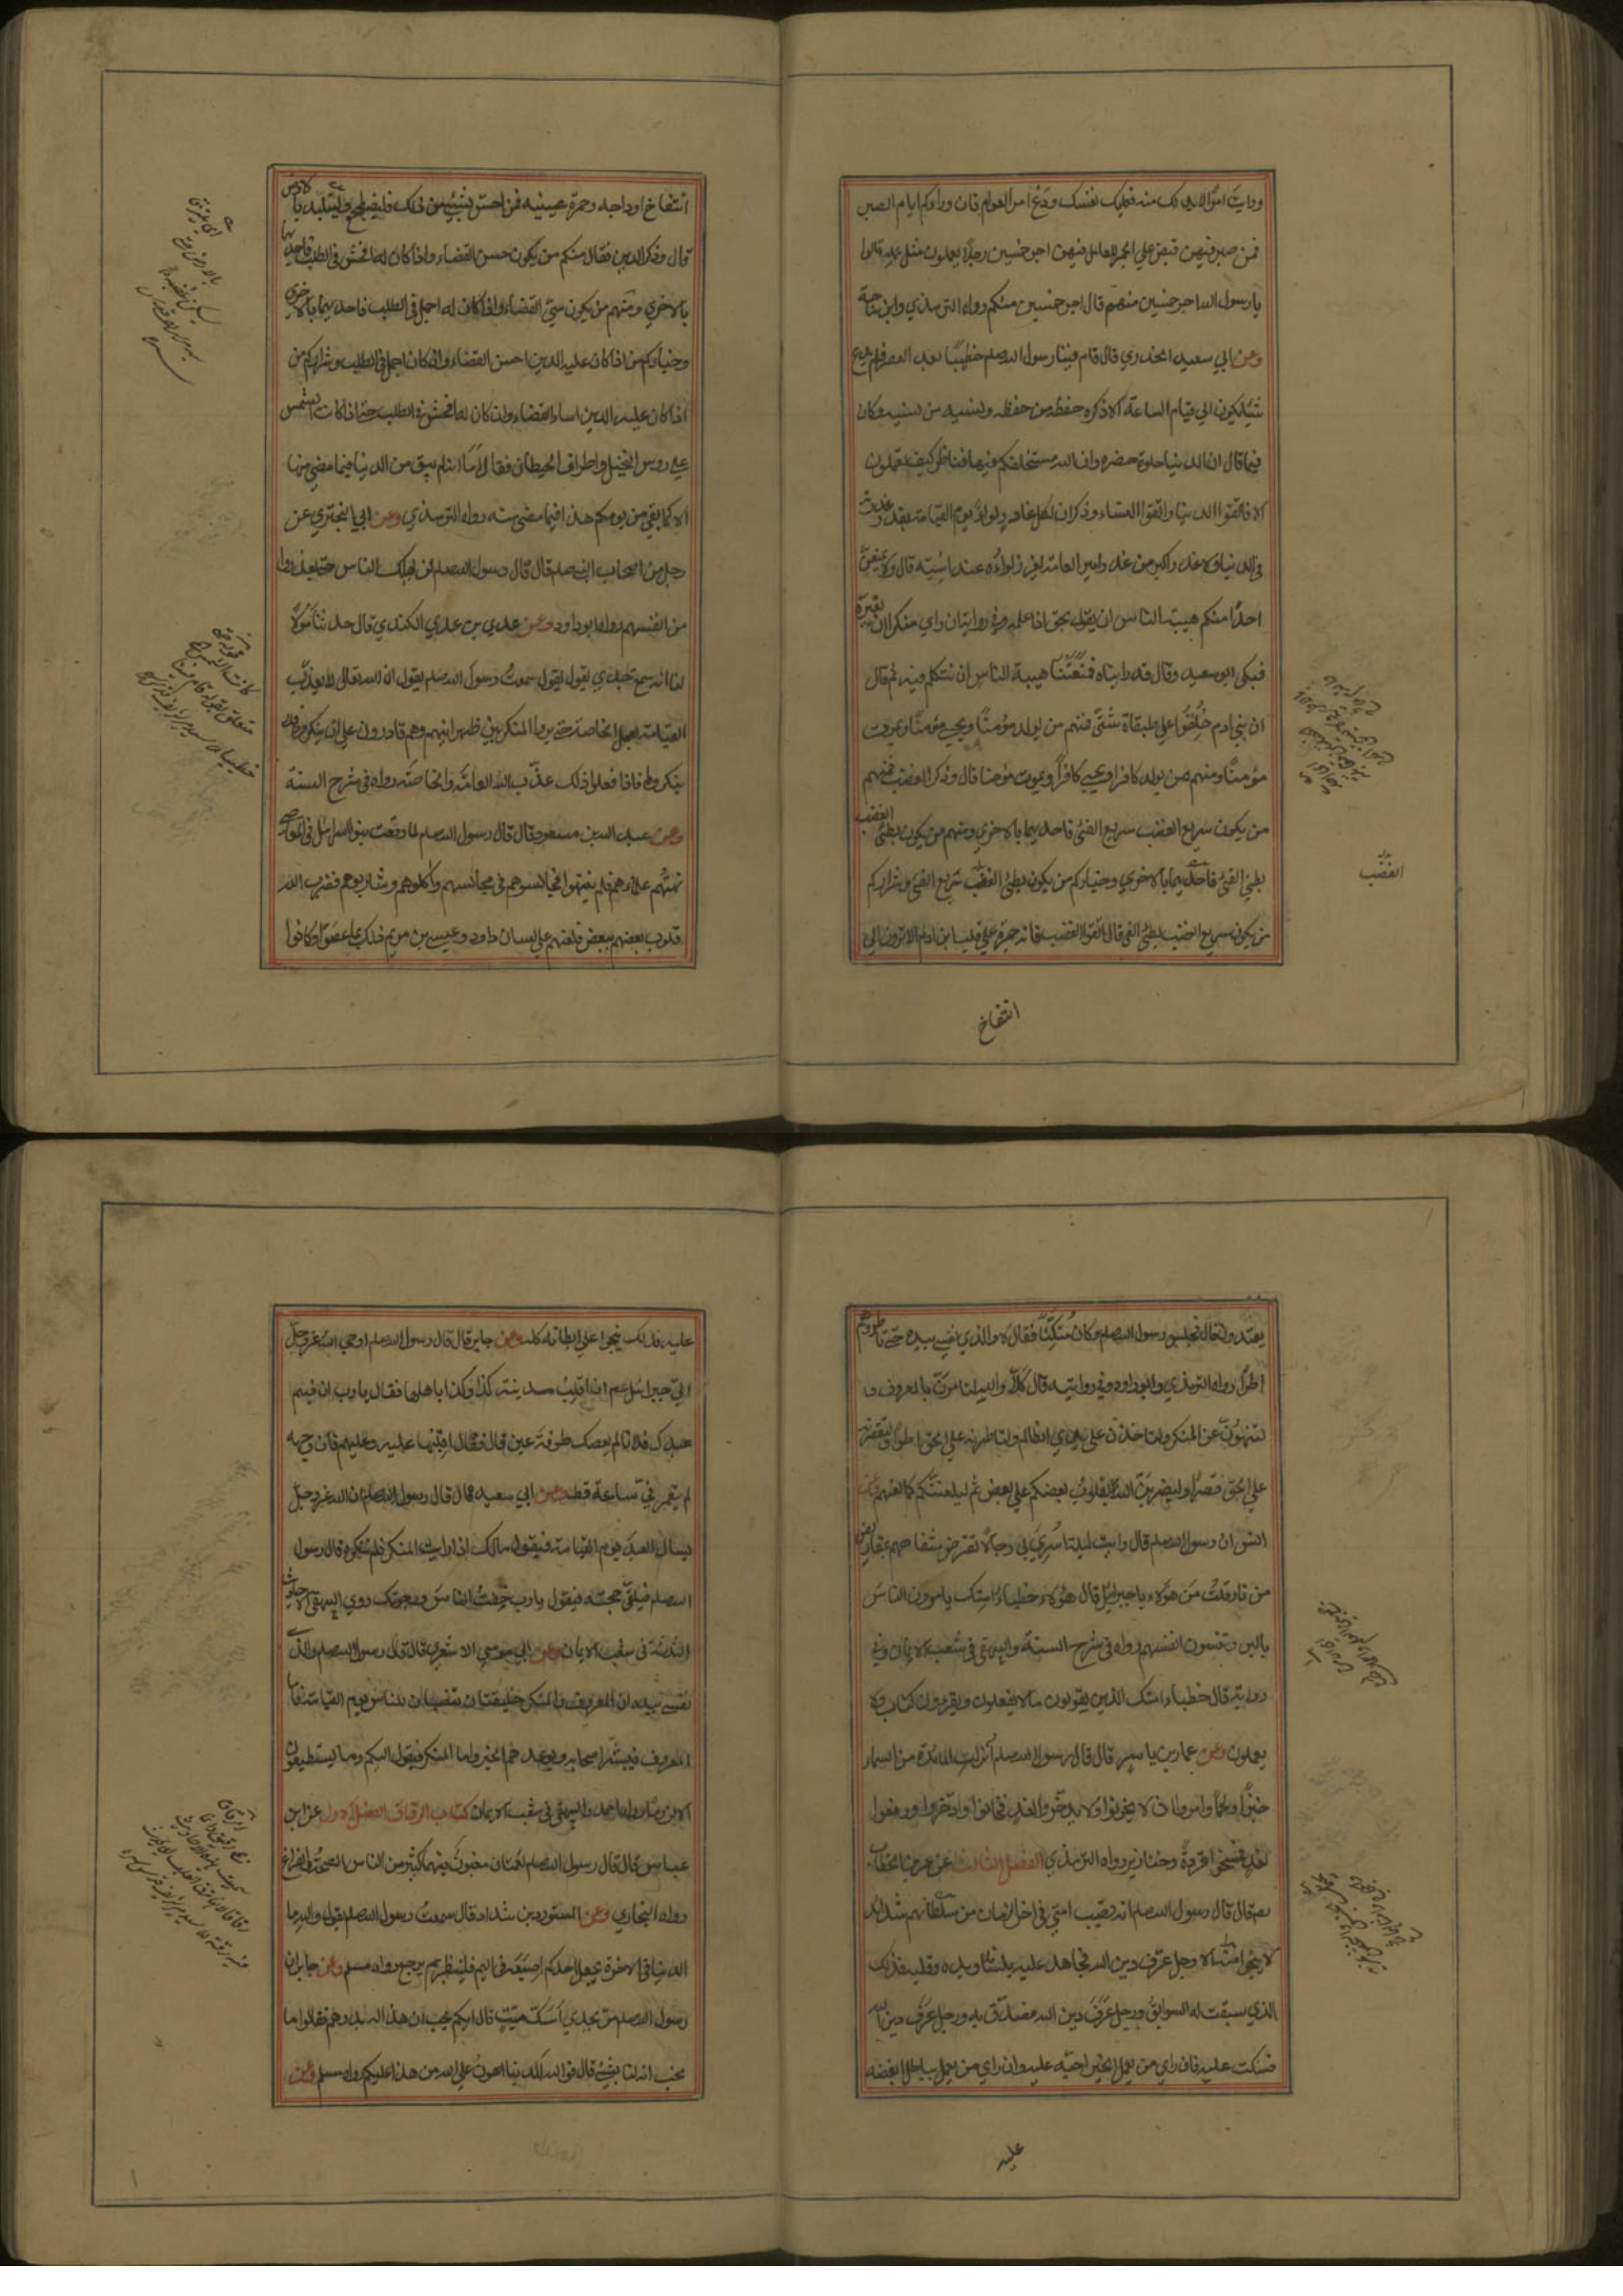 ورايت امرا لابد لك منه فعليك نفسك ودع امر العوام فان وراءكم ايام الصبر
فمن صبر فيهن قبض علي الجمر للعامل فيهن اجر خمسين رجلا يعملون مثل عمله قالوا
يا رسول الله اجر خمسين منهم قال اجر خمسين منكم رواه الترمذي وابن ماجة
وعن ابي سعيد الخدري قال قام فينا رسول الله صلعم خطيبًا بعد العصر فلم يدع
شيئا يكون الي قيام الساعة الا ذكره حفظه من حفظه ونسيه من نسيه وكان
فيما قال ان الدنيا حلوة خضرة وان الله مستخلفكم فيها فناظر كيف تعملون
الا فاتقوا الدنيا واتقوا النساء وذكر ان لكل غادر لواء يوم القيامة بقدر غدرته
في الدنيا ولا غدر اكبر من غدر امير العامة يغرز لواءه عند استه قال ولا يمنعن
احدًا منكم هيبة الناس ان يقول بحق اذا علمه وفي رواية ان راي منكرا ان يغيره
فبكي ابو سعيد وقال قد رايناه فمنعتنا هيبة الناس ان نتكلم فيه ثم قال
ان بني ادم خلقوا علي طبقاة شتى فمنهم من يولد مؤمنًا ويحيي مؤمنًا ويموت
مؤمنًا ومنهم من يولد كافرا ويحيي كافراً ويموت مؤمنا قال وذكر الغضب فمنهم
من يكون سريع الغضب سريع الفئ فاحديهما بالاخري ومنهم من يكون بطئ الغضب
بطئ الفئ فاحديهما بالاخري وخياركم من يكون بطئ الغضب سريع الفئ وشراركم
من يكون سريع الغضب بطئ الفئ قال اتقوا الغضب فانه جمرة علي قلب ابن ادم الا ترون الي
الغضب
انتفاخ
انتفاخ اوداجه وحمرة عينيه فمن احس بشيء من ذلك فليضطجع وليتلبد بالارض
قال وذكر الدين فقال منكم من يكون حسن القضاء واذا كان له افحش في الطلب فاحديهما
بالاخري ومنهم من يكون سيئ القضاء واذا كان له اجمل في الطلب فاحديهما بالاخري
وخياركم من اذا كان عليه الدين احسن القضاء وان كان له اجمل في الطلب وشراركم من
اذا كان عليه الدين اساء القضاء وان كان له افحش في الطلب حتى اذا كانت الشمس
علي روس النخيل واطراف الحيطان فقال اما انه لم يبق من الدنيا فيما مضي منها
الا كما بقي من يومكم هذا فيما مضي منه رواه الترمذي وعن ابي البختري عن
رجل من اصحاب النبي صلعم قال قال رسول الله صلعم لن يهلك الناس حتى يعذروا
من انفسهم رواه ابو داود وعن عدي بن عدي الكندي قال حدثنا مولا
لنا انه سمع جدي يقول سمعت رسول الله صلعم يقول ان الله تعالى لا يعذب
العامة بعمل الخاصة حتى يروا المنكر بين ظهرانيهم وهم قادرون علي ان ينكروه فلا
ينكروه فاذا فعلوا ذلك عذب الله العامة والخاصة رواه في شرح السنة
وعن عبد الله بن مسعود قال قال رسول الله صلعم لما وقعت بنو اسرائيل في المعاصي
نهتهم علماءهم فلم ينتهوا فجالسوهم في مجالسهم واكلوهم وشاربوهم فضرب الله
قلوب بعضهم ببعض فلعنهم علي لسان داود وعيسي بن مريم ذلك بما عصوا وكانوا
يعتدون قال فجلس رسول الله صلعم وكان متكئًا فقال لا والذي نفسي بيده حتى تاطروهم
اطرًا رواه الترمذي وابو داود وفي روايته قال كلا والله لتامرن بالمعروف و
لتنهون عن المنكر ولتاخذن علي يدي الظالم ولتاطرنه علي الحق اطرا ولتقصرنه
علي الحق قصرًا او ليضربن الله بقلوب بعضكم علي بعض ثم ليلعننكم كما لعنهم وعن
انس ان رسول الله صلعم قال رايت ليلة اسري بي رجالًا تقرض شفاههم بمقاريض
من نار قلت من هؤلاء يا جبرائيل قال هؤلاء خطباء امتك يامرون الناس
بالبر وينسون انفسهم رواه في شرح السنة والبيهقي في شعب الايمان وفي
رواية قال خطباء امتك الذين يقولون ما لا يفعلون ويقرءون كتاب الله ولا
يعملون وعن عمار بن ياسر قال قال رسول الله صلعم انزلت المائدة من السماء
خبزًا ولحمًا وامروا ان لا يخونوا ولا يدخروا لغد فخانوا وادخروا ورفعوا
لغد فمسخوا قردةً وخنازير رواه الترمذي الفصل الثالث عن عمر بن الخطاب
رضه قال قال رسول الله صلعم انه تصيب امتي في اخر الزمان من سلطانهم شدائد
لا ينجوا منه الا رجل عرف دين الله فجاهد عليه بلسانه ويده وقلبه فذلك
الذي سبقت له السوابق ورجل عرف دين الله فصدق به ورجل عرف دين الله
فسكت عليه فان راي من يعمل الخير احبه عليه وان راي من يعمل بباطل ابغضه
عليه
عليه فذلك ينجوا علي ابطانه كله وعن جابر قال قال رسول الله صلعم اوحي الله عز وجل
الي جبرائيل عم ان اقلب مدينة كذا وكذا باهلها فقال يا رب ان فيهم
عبدك فلانا لم يعصك طرفة عين قال فقال اقلبها عليه وعليهم فان وجهه
لم يتمعر في ساعة قط وعن ابي سعيد قال قال رسول الله صلعم ان الله عز وجل
يسال العبد يوم القيامة فيقول مالك اذا رايت المنكر فلم تنكره قال رسول
الله صلعم فيلقى حجته فيقول يا رب خفت الناس ورجوتك روي البيهقي الاحاديث
الثلثة في شعب الايمان وعن ابي موسي الاشعري قال قال رسول الله صلعم والذي
نفسي بيده ان المعروف والمنكر خليقتان تنصبان للناس يوم القيامة فاما
المعروف فيبشر اصحابه ويوعدهم الخير واما المنكر فيقول اليكم وما يستطيعون
الا لزوما رواه احمد والبيهقي في شعب الايمان كتاب الرقاق الفصل الاول عن ابن
عباس قال قال رسول الله صلعم نعمتان مغبون فيهما كثير من الناس الصحة والفراغ
رواه البخاري وعن المستورد بن شداد قال سمعت رسول الله صلعم يقول والله ما
الدنيا في الاخرة الا مثل ما يجعل احدكم اصبعه في اليم فلينظر بم يرجع رواه مسلم وعن جابر ان
رسول الله صلعم مر بجدي اسك ميت قال ايكم يحب ان هذا له بدرهم فقالوا ما
نحب انه لنا بشيء قال فوالله للدنيا اهون علي الله من هذا عليكم رواه مسلم وعن